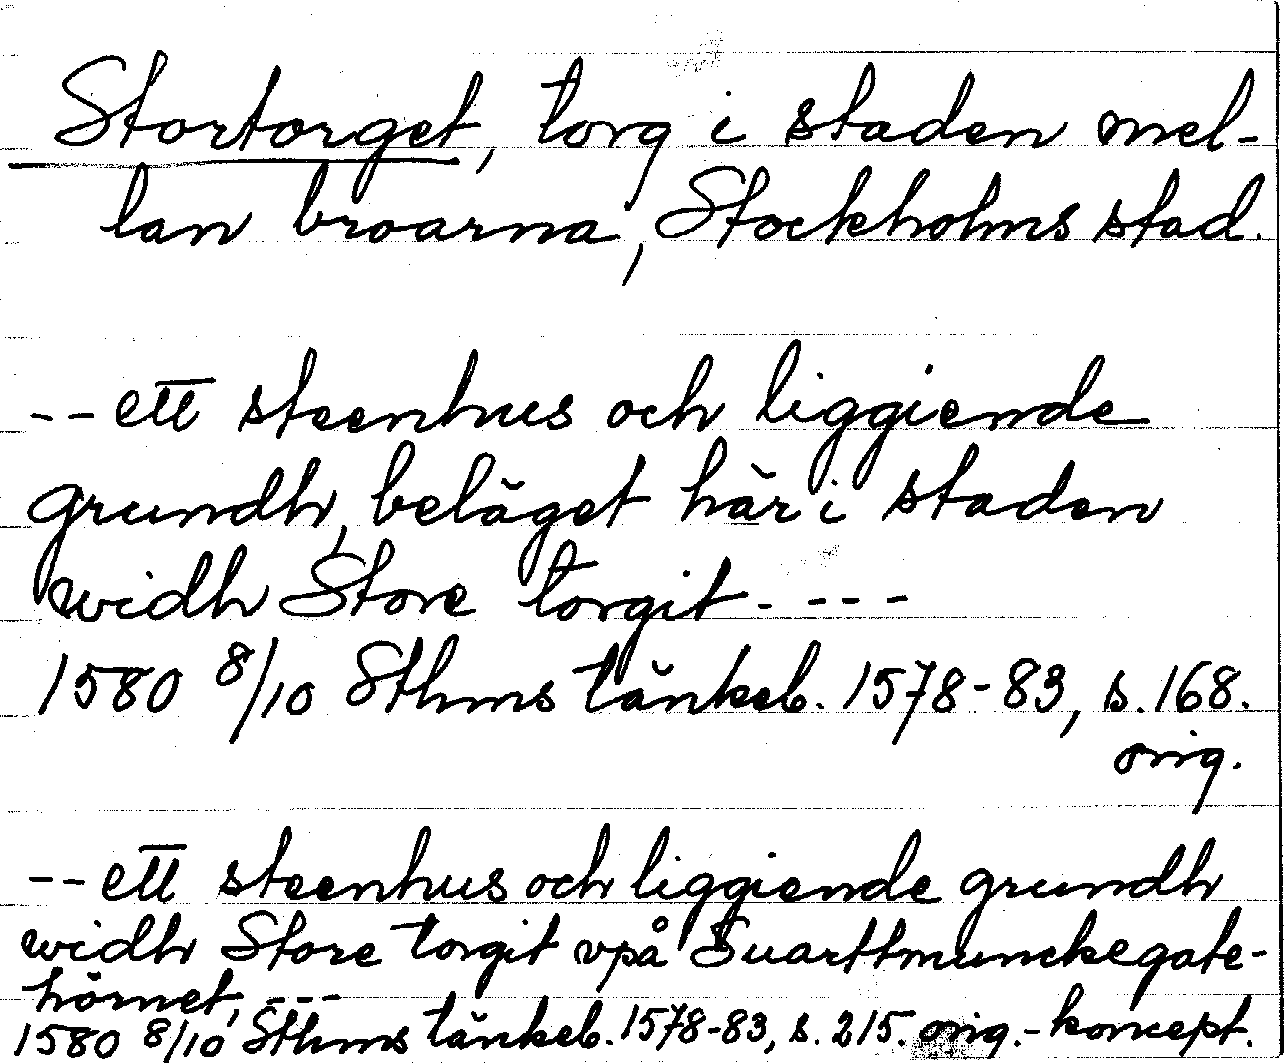 Stortorget, torg i staden mel-
lan broarna, Stockholms stad.
-- ett steenhus och liggiende
grundh, beläget här i staden
widh Store torgit - - - -
1580 8/10 Sthms tänkeb. 1578-83, s. 168.
orig.
-- ett steenhus och liggiende grundh
widh Store torgit vpå Suarttmunckegate-
hörnet, ---
1580 8/10 Sthms tänkeb. 1578-83, s. 215. orig.-koncept.